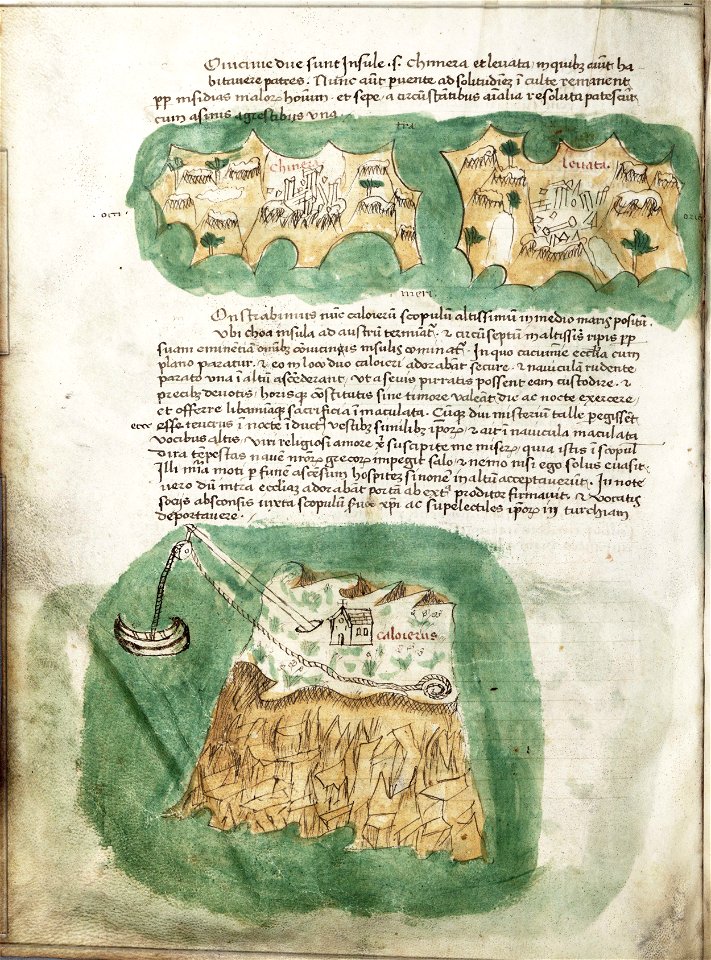 Quincunie due sunt Insule .s. Chimera et levata, in quibꝫ aūt ha
bitavere patres. Nunc aūt pꝛuente ad solitudinē ī culte remanent
ꝓp insidias maloꝝ hoīum. et sepe, a circūstātibus aīalia resoluta patescūt
cum asinis agrestibus una.
tra
Chimera
levata.
occi
oriē
meri.
Onstrabimus nūc caloierū scopulū altissimū in medio maris positū.
Vbi choa insula ad austrū termīat. & circūseptū altissis ripis ꝓp
suam eminētiā omībꝫ cōvicinis insulis cominat. In quo cacumine ecclīa cum
plano paratur. & eo in loco duo caloieri adorabāt secure. & naviculā rudente
parato una ī altū ascēderant, ut a sevis pirratis possent eam custodire. &
precibꝫ devotis, horisqꝫ cōstitutis sine timore valeāt die ac nocte exercere,
et offerre libamīaqꝫ sacrificia īmaculata. Cūqꝫ diu misteriū talle pegissēt
ecce
esse teucrus ī nocte īduct vestibꝫ similibꝫ ipoꝝ & ait ī navicula maculata
vocibus altis, viri religiosi amore xp̄i suscipite me miseꝝ, quia istis ī scopul
dira tēpestas navē nrōꝝ grecoꝝ impegit salo & nemo nisi ego solus evasit.
Illi mīa moti ꝑ funē ascensum hospitem si none ī altū acceptaverūt. In nocte
vero dū intra ecclīaꝫ adorabāt portā ab extͣ proditor firmavit. & vocatis
socijs absconsis iuxta scopulū fuere xp̄i ac supelectiles ipoꝝ in turchiam
deportavere.
caloierus